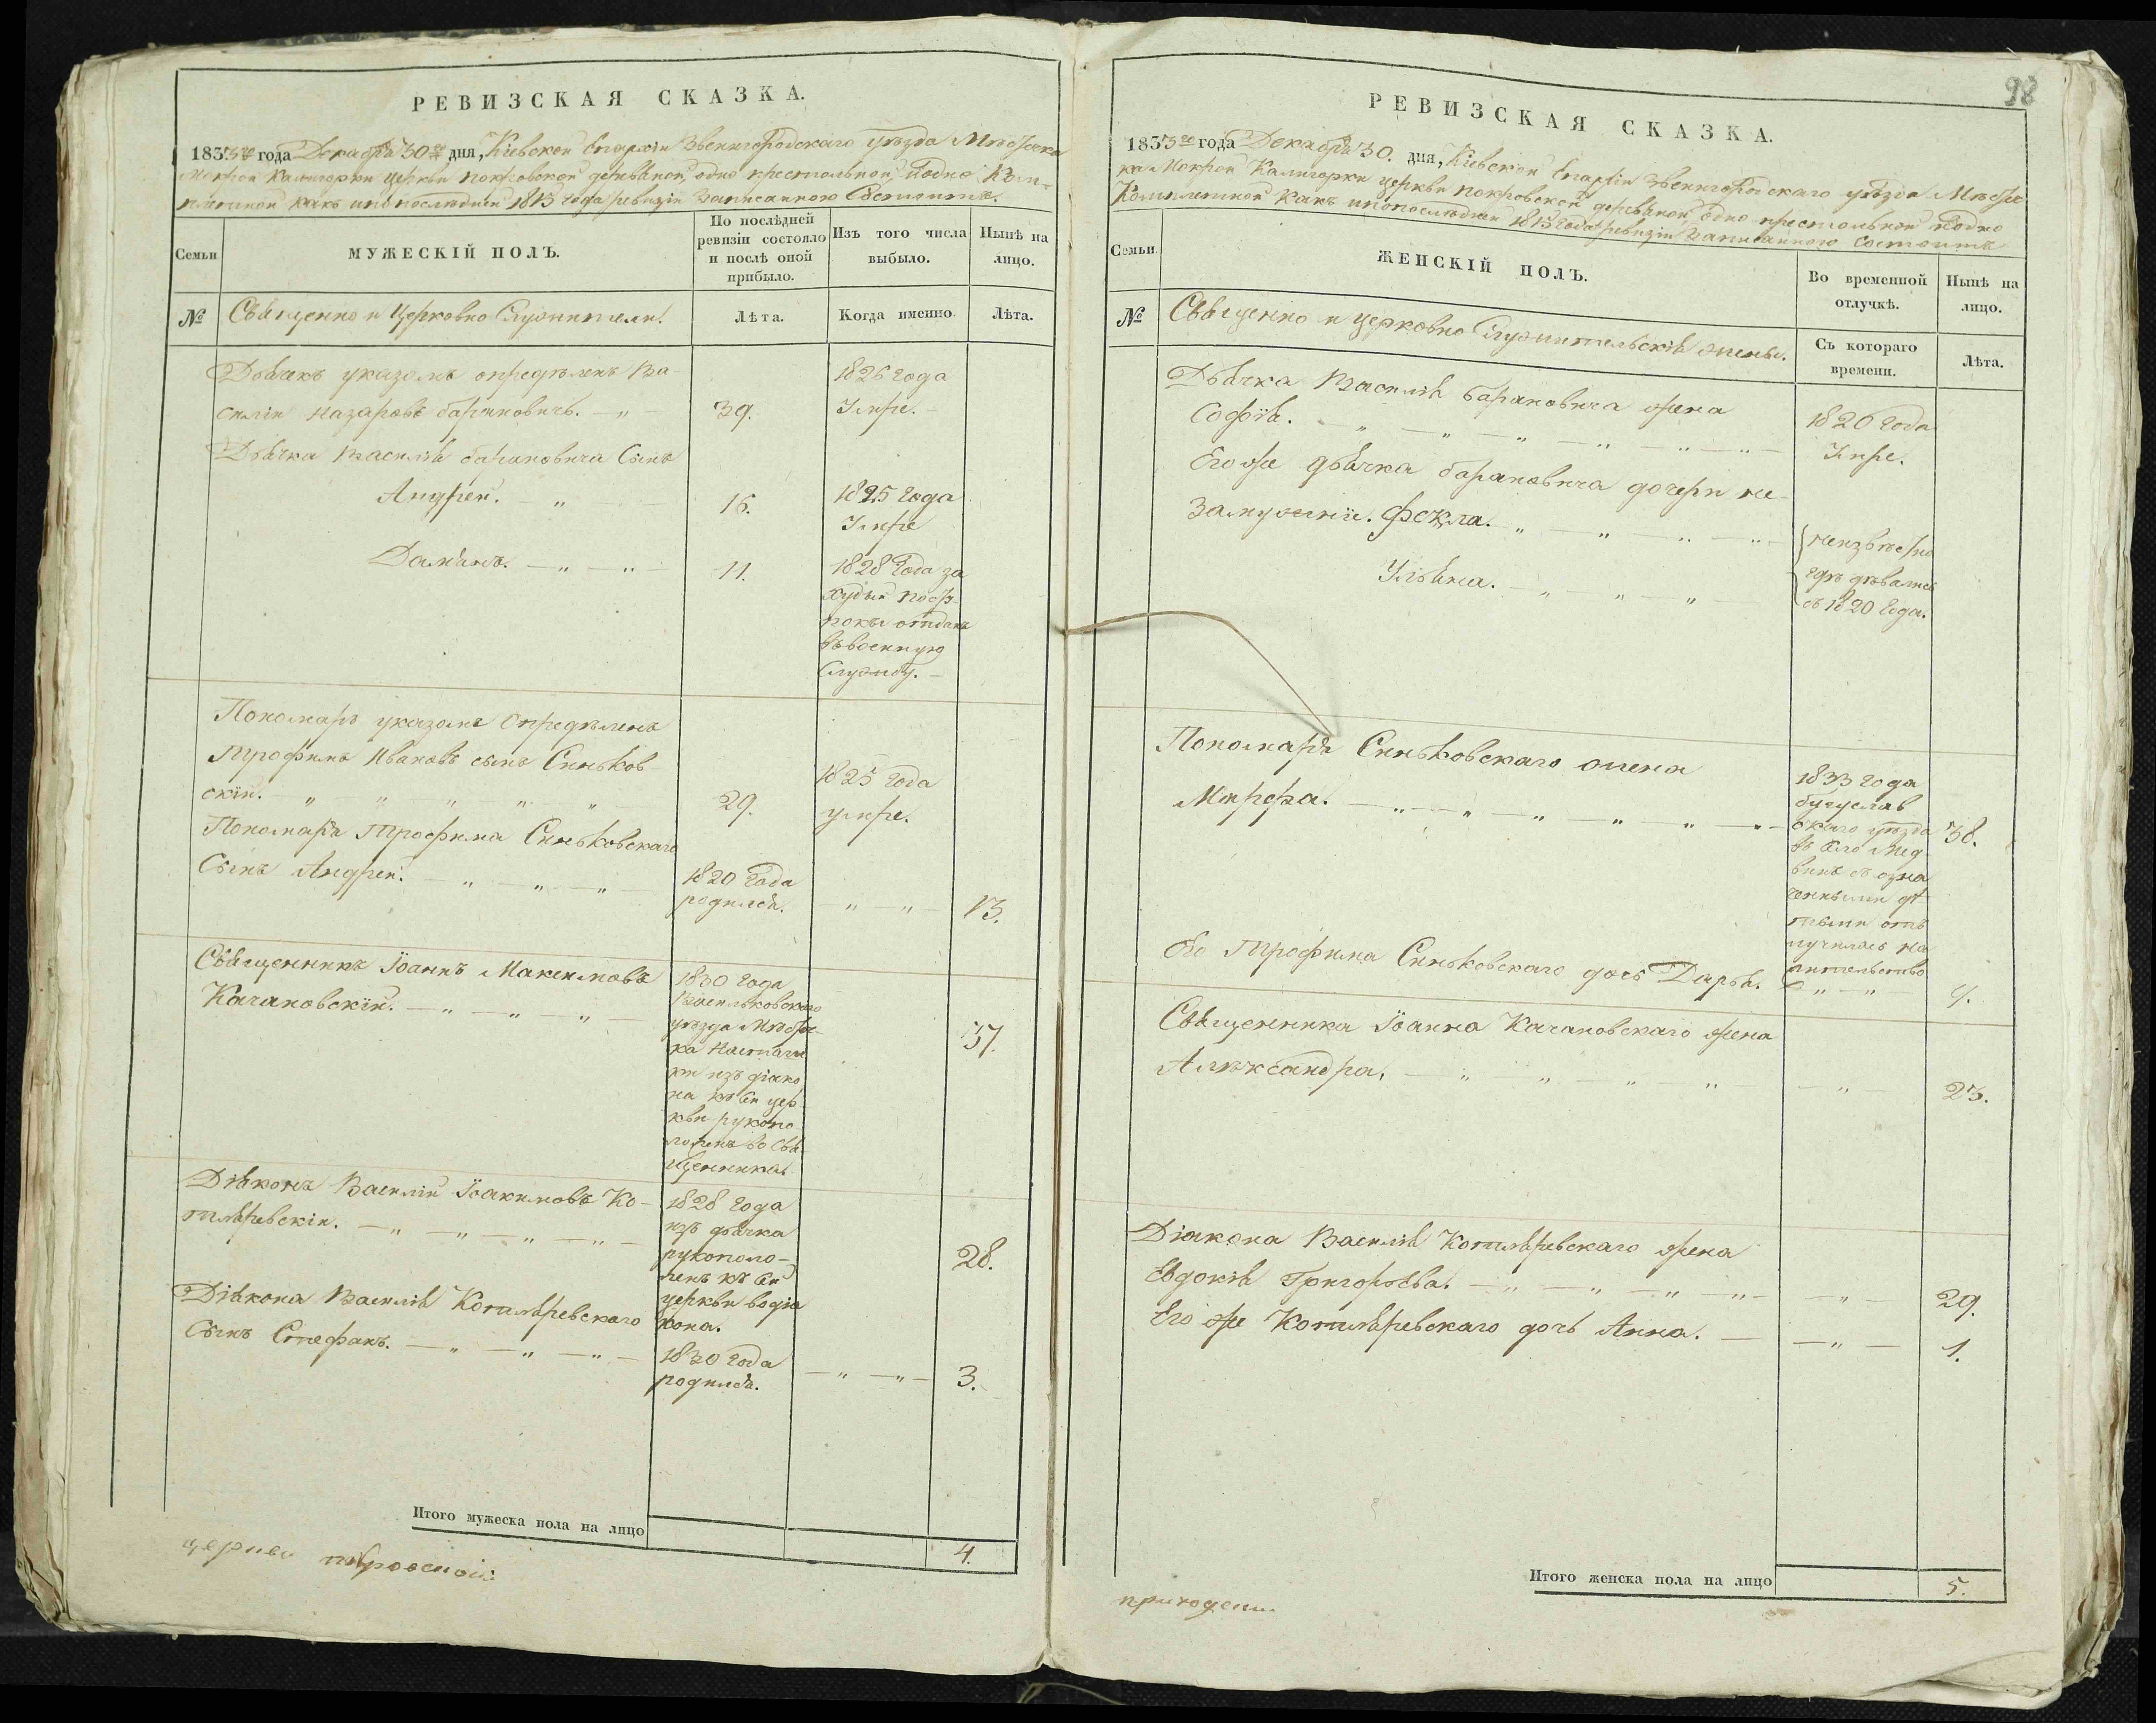 РЕВИЗСКАЯ СКАЗКА.
1833го года Декабря 30го дня, Кіевской Епархіи Звенигородскаго уѣзда Мѣстечка
Мокрой Калигорки церкви покровской деревяной одно престольной Подно Ком-
плетной какъ ипо послѣдней 1813 года ревизіи записанного Состоитъ.
Семьи
МУЖЕСКІЙ ПОЛЪ.
По послѣдней
ревизіи состояло
и послѣ оной
прибыло.
Изъ того числа
выбыло.
Нынѣ на
лицо.
№
Священно и Церковно Служители.
Лѣта.
Когда именно.
Лѣта.
Дьячекъ указомъ опредѣленъ Ва-
силій Назаровъ барановичъ. — „ —
39.
1826 года
Умре. —
Дьячка Василія барановича Сынъ
Андрей. — „ —
16.
1825 года
Умре
Даміанъ. — „ — „ —
11.
1828 Года за
худыя посту-
поки отданъ
въ военную
Службу. —
Пономарь указомъ Опредѣленъ
Трофимъ Ивановъ сынъ Синьков-
скій. — „ — „ — „ — „ — „
29.
1825 года
умре.
Пономаря Трофима Синьковскаго
Сынъ Андрей. — „ — „ — „ —
1820 Года
родился.
— „ — „ —
13.
Священникъ Іоаннъ Максимовъ
Качановскій. — „ — „ — „ —
1830 Года
Васильковскаго
уѣзда Мѣсте-
ка Настаги
ки изъ діако
на къ сей цер
кви рукопо
ложенъ во Свя
щенника.
37.
Діяконъ Василій Іоакимовъ Ко-
тляревскій. — „ — „ — „ — „ —
1828 Года
изъ дьячка
рукополо-
женъ къ сей
церкви водія
кона.
28.
Діякона Василія Котляревскаго
Сынъ Стефанъ. — „ — „ — „ —
1830 Года
родился.
— „ — „ —
3.
Итого мужеска пола на лицо
4.
церкви покровской
98
РЕВИЗСКАЯ СКАЗКА.
1833го года Декабря 30. дня, Кіевской Епархіи Звенигородскаго уѣзда Мѣсте
ка Мокрой Калигорки церкви покровской деревяной одно престольной Подно
Комплетной какъ ипопослѣдней 1813 Года ревизіи записанного Состоитъ
Семьи
ЖЕНСКІЙ ПОЛЪ.
Во временной
отлучкѣ.
Нынѣ на
лицо.
№
Священно и церковно Служительскія жены.
Съ котораго
времени.
Лѣта.
Дьячка Василія барановича жена
Софія. — „ — „ — „ — „ — „ — „ —
1820 Года
Умре.
Его же дьячка барановича дочери не-
замужніи. Фекла. — „ — „ — „ — „ —
Уліяна. — „ — „ — „ —
неизвѣстно
гдѣ дѣвались
съ 1820 Года.
Пономаря Синьковскаго жена
Марфа. — „ — „ — „ — „ — „ — „ —
1833 Года
бугуслав
скаго уѣзда
въ село Мед-
винъ съ озна
ченными дѣ
тьми отъ
лучилась на
жительство
38.
Его Трофима Синьковскаго дочь Дарья.
— „ — „ —
9.
Священника Іоанна Качановскаго жена
Алѣксандра, — „ — „ — „ — „
— „ —
23.
Діякона Василія Котляревскаго жена
Евдокія Григорьева. — „ — „ — „ — „ —
— „ —
29.
Его же Котляревскаго дочь Анна. —
— „ —
1.
Итого женска пола на лицо
5.
приходскій